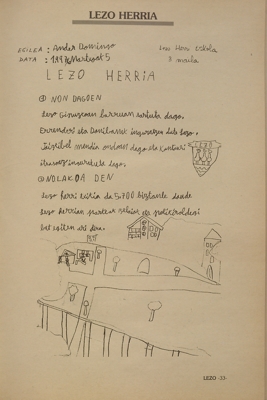 LEZO HERRIA
EGILEA : Ander Domingo
DATA : 1997 Martxoak 5
Lezo Herri Eskola
3 maila
LEZO HERRIA
NON DAGOEN
Lezo Gipuzkoan barruan sartuta dago.
Errenderi eta Donibanek inguratzen dute Lezo.
Jaizkibel mendia ondoan dago eta Kantauri
itsasoaz inguratuta dago.
LEZO
NOLAKOA DEN
Lezo herri txikia da 5.700 biztanle daude
Lezo herrian
bat egiten ari dira.
LEZO -33-